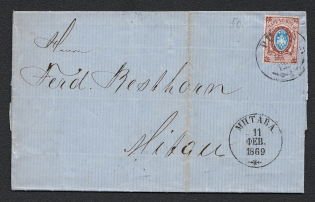 Herrn
Ferd. Besthorn
Mitau
МИТАВА
11
ФЕВ.
1869